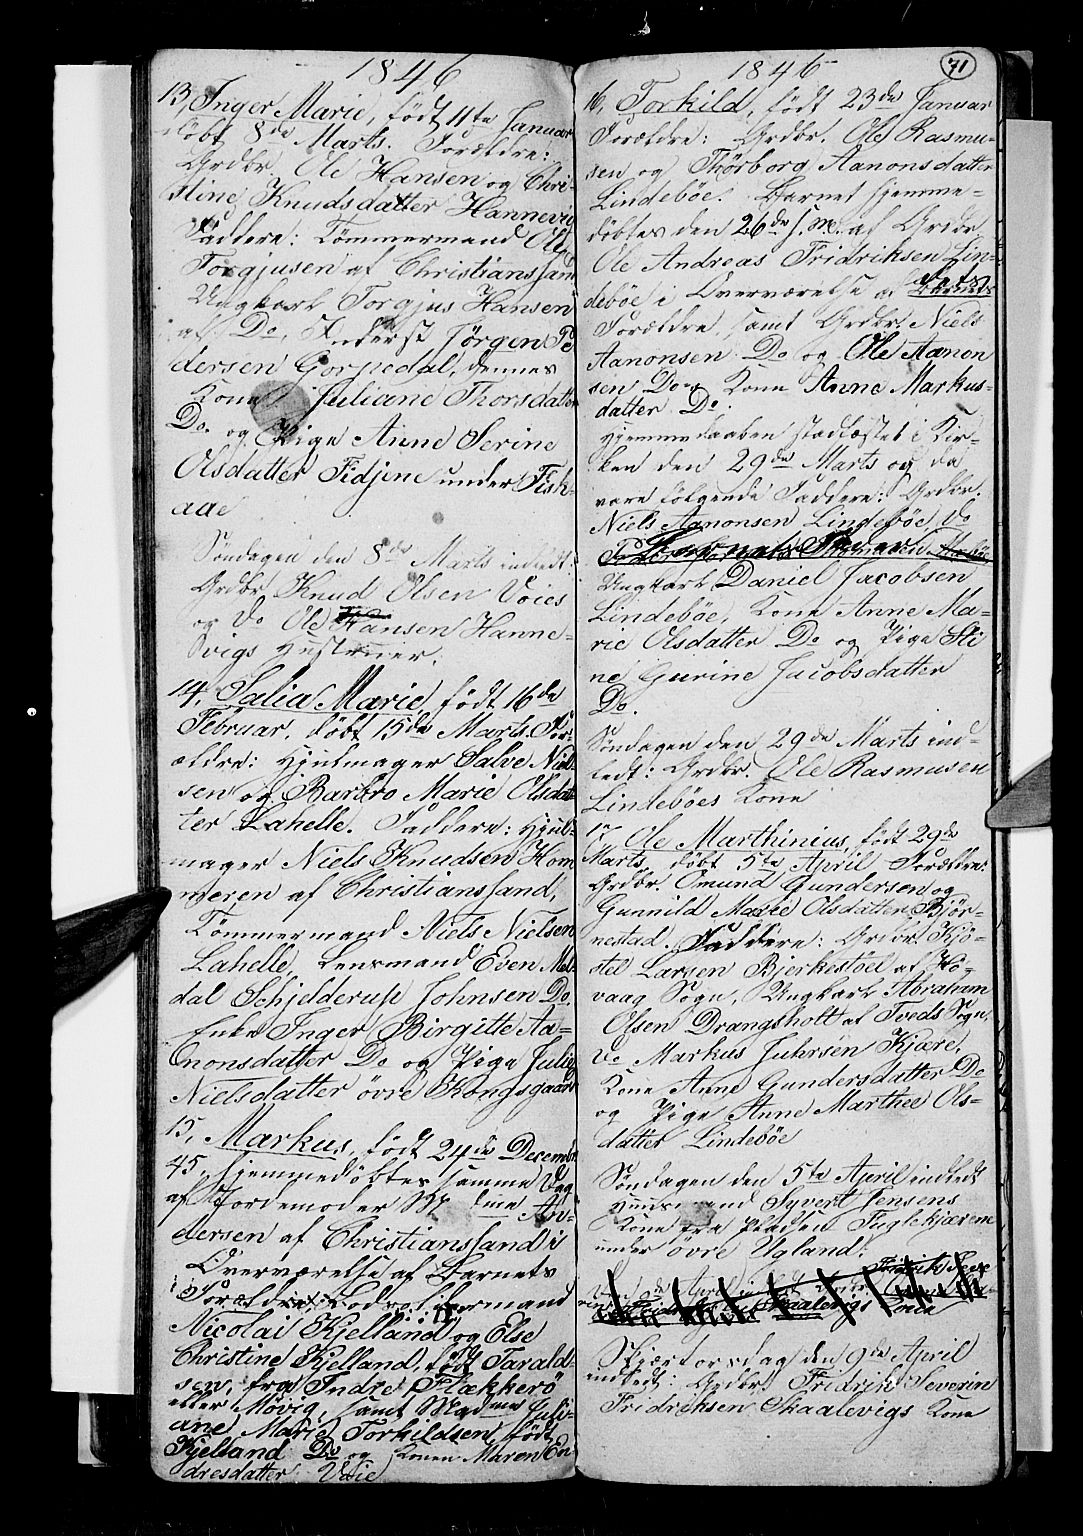 1846
13, Inger Marie, født 11te Januar
døbt 8de Marts. Forældre:
Grdbr. Ole Hansen og Chri-
stine Knudsdatter Hannevig
Faddere: Tømmermand Ole
Torgjusen af Christianssand
Ungkarl Torgjus Hansen
af Do, Jørgen Pe-
dersen Gorpedal, dennes
Kone Juliane Thorsdatter
Do. og Pige Anne Serine
Olsdatter Fidjene under Fisk-
aae
Søndagen den 8de Marts indledt:
Grdbr. Knud Olsen Voies
og do Ole Hansen Hanne-
vigs Hustruer.
14, Salia Marie, født 16de
Februar, døbt 15de Marts. For-
ældre: Hjulmager Salve Niel-
sen og Barbro Marie Olsdat-
ter Lahelle. Faddere: Hjul-
mager Niels Knudsen Hom-
meren af Christianssand,
Tømmermand Niels Nielsen
Lahelle, Lensmand Even Mel-
dal Schjelderup Johnsen Do.
Enke Inger Birgitte Aa-
nonsdatter Do og Pige Julie
Nielsdatter øvre Kongsgaard
15, Markus, født 24de Decembr.
45, hjemmedøbtes samme Dag
af Jordemoder Mdme An-
dersen af Christianssand i
Overværelse af Barnets
Forældre: Lods
Nicolai Kjelland og Else
Christine Kjelland, født Tarald-
sen, fra Indre Flækkerø
eller Møvig, samt Madme Juli-
ane Marie Torkildsen, født
Kjelland Do og Konen Maren En-
dresdatter Voie
1846
71
16, Torkild, født 23de Januar
Forældre: Grdbr. Ole Rasmu-
sen og Thørborg Aanonsdatter
Lindebøe. Barnet hjemme-
døbtes den 26de s. M. af Grdbr.
Ole Andreas Fridriksen Lin-
debøe i Overværelse af Barnets
Forældre, samt Grdbr. Niels
Aanonsen Do og Ole Aanon
sen Do og Kone Anne Markus-
datter Do.
Hjemmedaaben stadfæstet i Kir-
ken den 29de Marts og da
vare følgende Faddere: Grdbr.
Niels Aanonsen Lindebøe, do
Ungkarl Daniel Jacobsen
Lindebøe, Kone Anne Ma-
rie Olsdatter Do og Pige Sti
ne Gurine Jacobsdatter
Do.
Søndagen den 29de Marts ind-
ledt: Grdbr. Ole Rasmusen
Lindebøes Kone
17 Ole Marthinius, født 29de
Marts, døbt 5te April Forældre:
Grdbr. Omund Gundersen og
Gunnild Marie Olsdatter Bjør-
nestad. Faddere: Grdbr. Kjø-
stel Larsen Bjerkestøel af Hø-
vaag Sogn, Ungkarl Abraham
Olsen Drangsholt af Tveds Sogn,
do Markus Juhrsen Kjære,
Kone Anne Gundersdatter Do
og Pige Anne Marthee Ols-
datter Lindebøe
Søndagen den 5te April indledt
Huusmand Syvert Jensens
Kone fra Pladsen Fuglekjærene
under øvre Ugland.
Skaalevigs Kone
Skjærtorsdag den 9de April
indledt: Grdbr. Fridrik Severin
Fridriksen Skaalevigs Kone